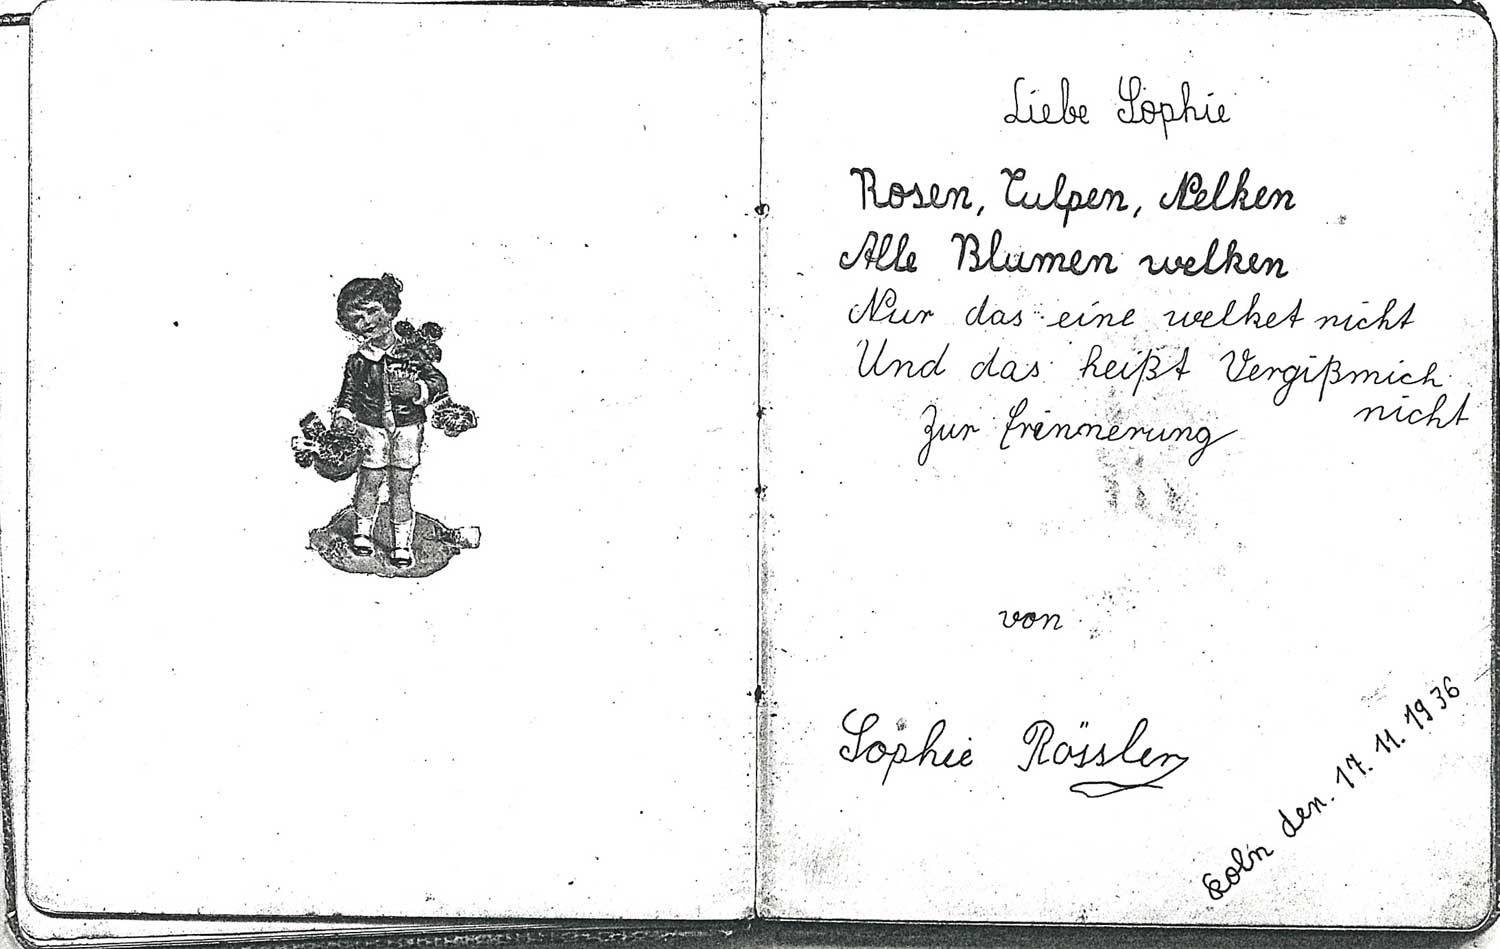 Liebe Sophie
Rosen, Tulpen, Nelken
Alle Blumen welken
Nur das eine welket nicht
Und das heißt Vergißmich
nicht
Zur Erinnerung
von
Sophie Rössler
Köln den. 17. 11. 1936